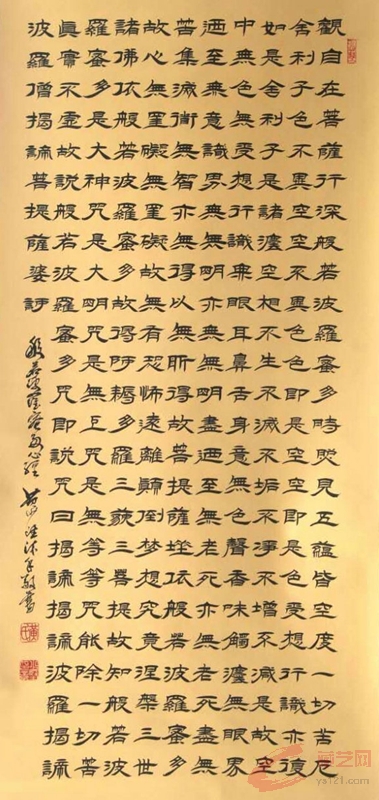 觀自在菩薩行深般若波羅蜜多時照見五蘊皆空度一切苦厄
舍利子色不異空空不異色色即是空空即是色受想行識亦復
如是舍利子是諸灋空相不生不滅不垢不淨不增不減是故空
中無色無受想行識無眼耳鼻舌身意無色聲香味觸灋無眼界
迺至無意識界無無明亦無無明盡迺至無老死亦無老死盡無
苦集滅衜無智亦無得以無所得故菩提薩埵依般若波羅蜜多
故心無罣礙無罣礙故無有恐怖遠離顛倒夢想究竟涅槃三世
諸佛依般若波羅蜜多故得阿耨多羅三藐三菩提故知般若波
羅蜜多是大神咒是大明咒是無上咒是無等等咒能除一切苦
眞實不虛故說般若波羅蜜多咒即說咒曰揭諦揭諦波羅揭諦
波羅僧揭諦菩提薩婆訶
般若波羅蜜多心經
敬書
艺网